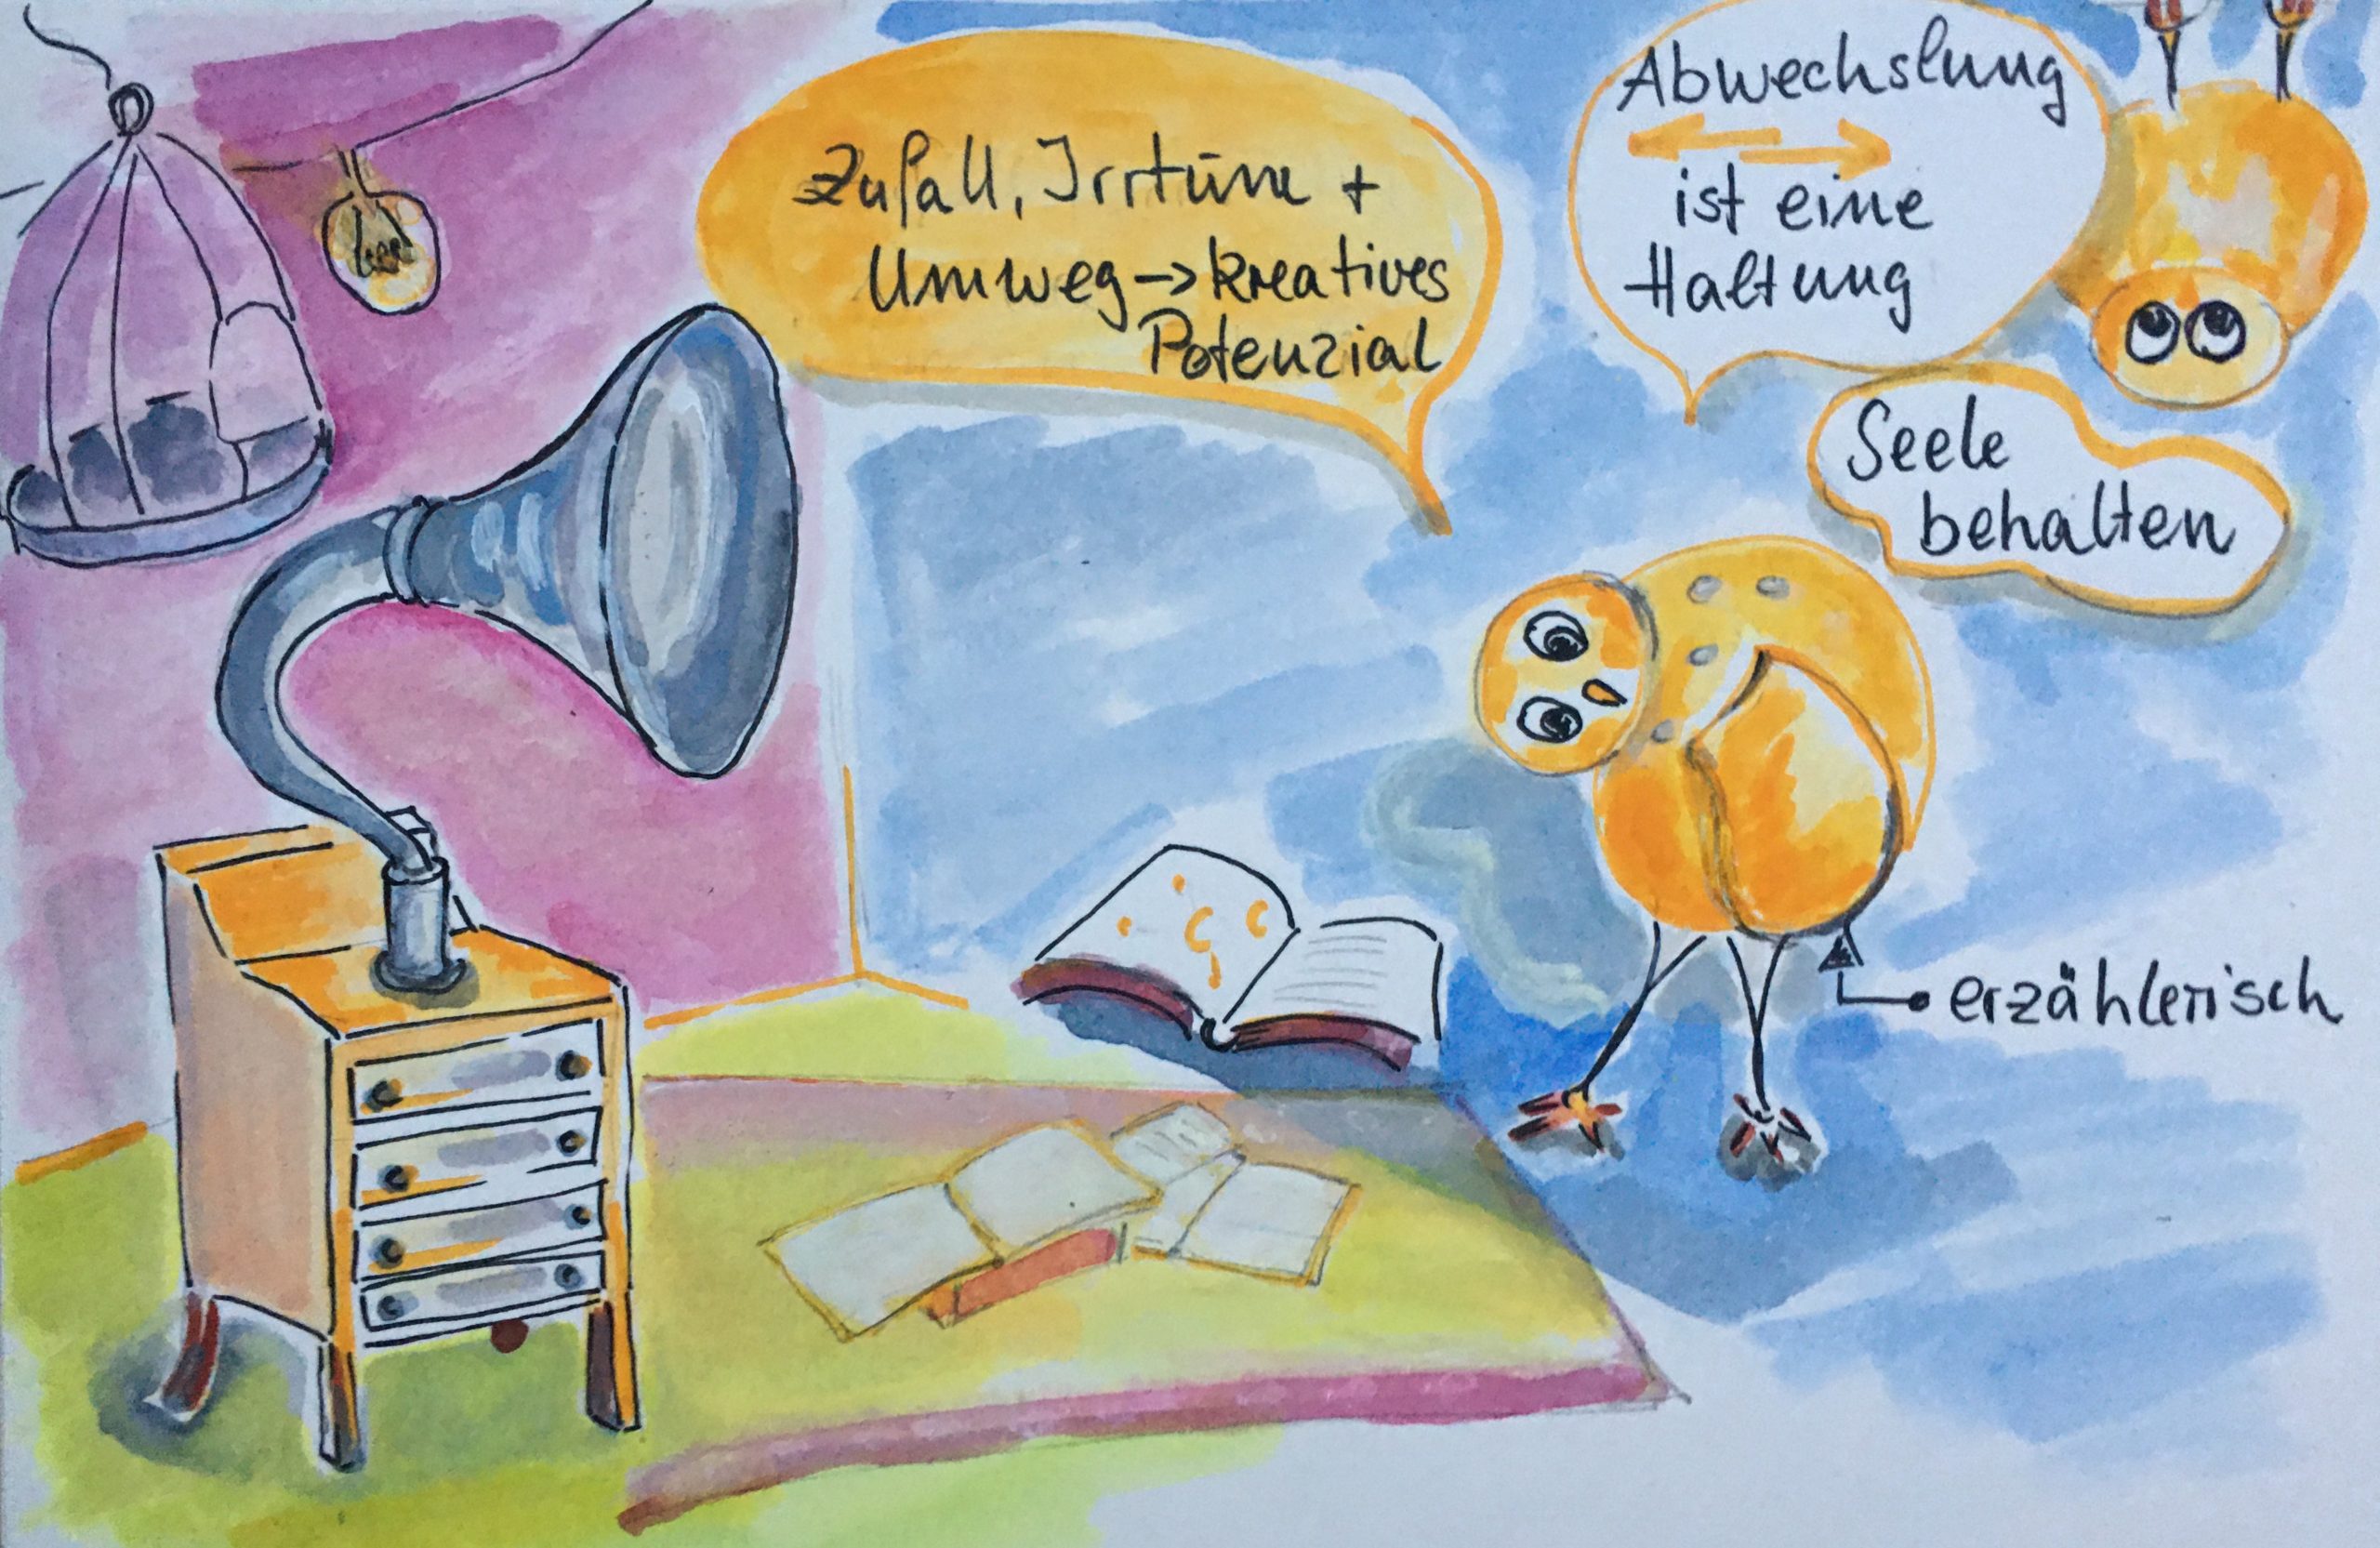 Zufall, Irrtüme +
Umweg → kreatives
Potenzial
Abwechslung
ist eine
Haltung
Seele
behalten
erzählerisch